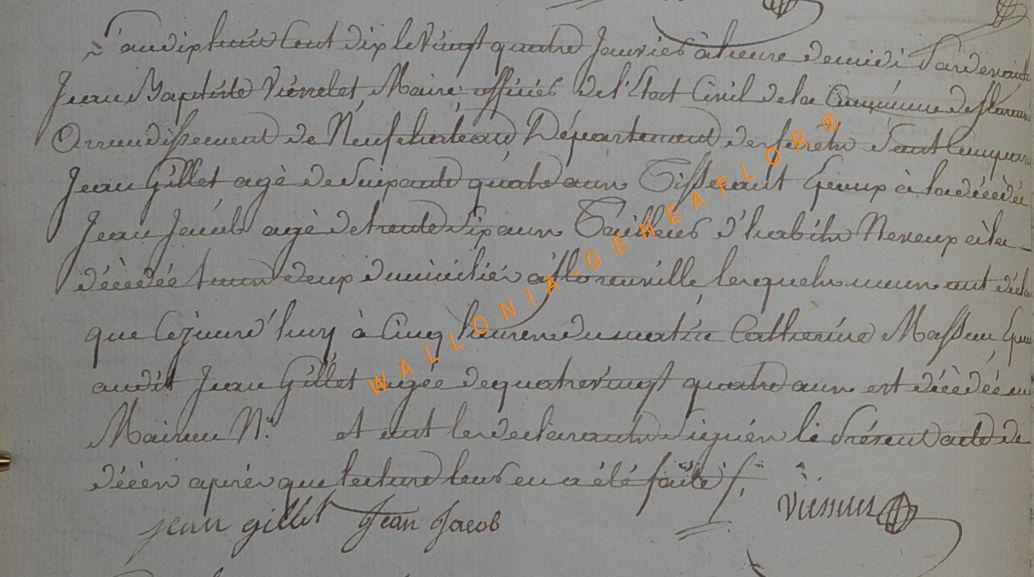 L'an dix huit cent dix le vingt quatre Janvier à heure de midi Pardevant
Jean Baptiste Viennet, Maire officier de l'Etat Civil de la Commune de
Arrondissement de Neufchateau Département des forêts sont comparu
Jean Gillet agé de soixante quatre ans Tisserant Epoux à la décédée
Jean Jacob agé de trente six ans Tailleur d'habits Neveux à la
décédée tous deux domiciliés à florenville lesquels nous ont décla
que cejourd'huy à Cinq heures du matin Catherine Epou
audit Jean Gillet agée de quatrevingt quatre ans est décédée en
Maison N.° et ont les declarants signés le Présent acte de
décès aprés que lecture leur en a été faite
jean gillet Jean Jacob
WALLONIA-GENEAFLOR®